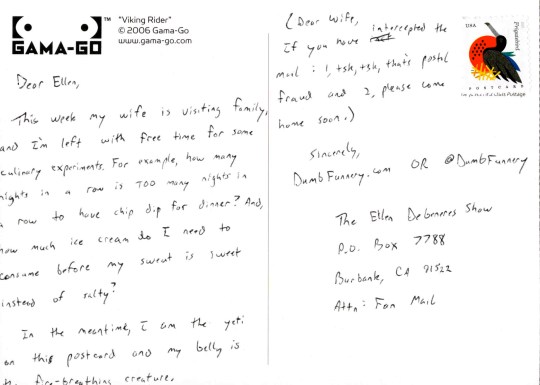 "Viking Rider"
© 2006 Gama-Go
www.gama-go.com
GAMA-GO
Dear Ellen,
This week my wife is visiting family,
and I'm left with free time for some
culinary experiments. For example, how many
nights in a row is TOO many nights in
a row to have chip dip for dinner? And,
how much ice cream do I need to
consume before my sweat is sweet
instead of salty?
In the meantime, I am the yeti
on this postcard and my belly is
fire-breathing creature.
(Dear Wife,
If you have intercepted the
mail: 1, tsk, tsk, that's postal
fraud and 2, please come
home soon.)
Sincerely,
DumbFunnery.com OR @DumbFunnery
The Ellen Degeneres Show
P.O. Box 7788
Burbank, CA 91522
Attn: Fan Mail
USA
POSTCARD